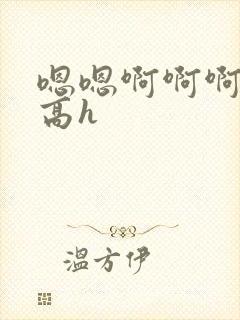 嗯嗯啊啊啊
高h
温方伊